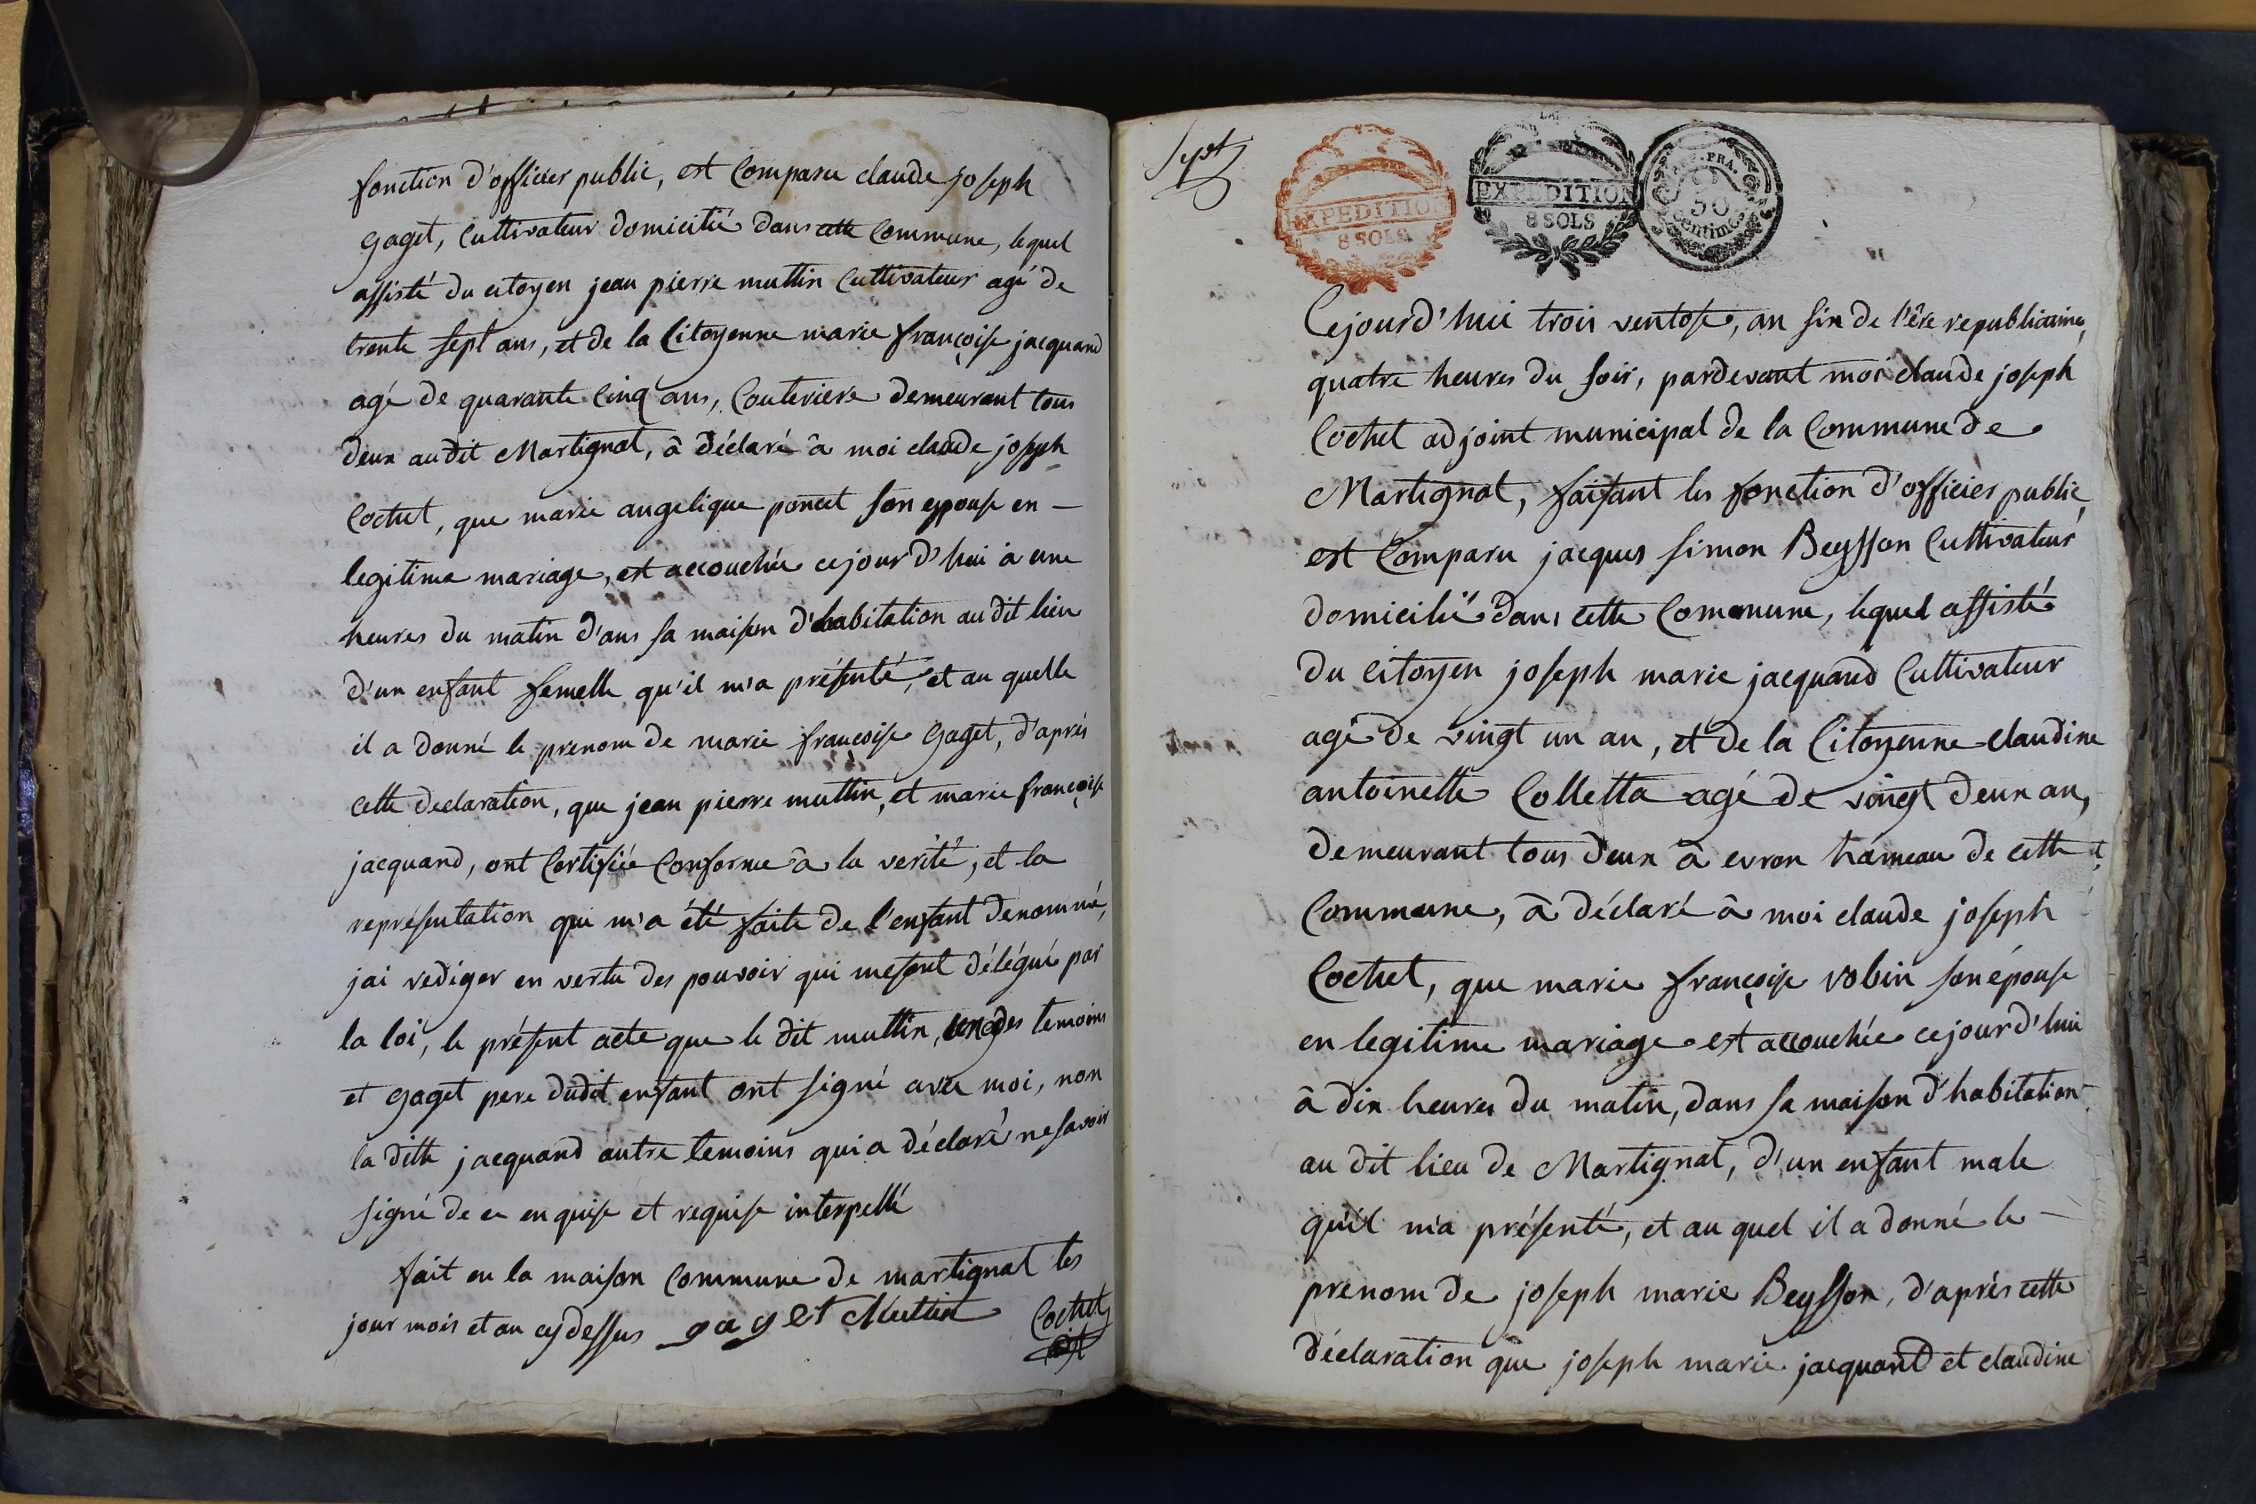 fonction d'officier public, est Comparu claude joseph
gaget, Cultivateur domicilié dans cette Commune, lequel
assisté du citoyen jean pierre muttin Cultivateur agé de
trente sept ans, et de la Citoyenne marie françoise jacquand
agé de quarante Cinq ans, Couteriere demeurant tous
deux au dit Martignat, â déclaré â moi claude joseph
Cochet, que marie angelique poncet son epouse en -
legitime mariage, est accouchée cejourd'hui à une
heures du matin d'ans sa maison d'habitation au dit lieu
d'un enfant femelle qu'il m'a présenté, et au quelle
il a donné le prenom de marie françoise gaget, d'après
cette declaration, que jean pierre muttin, et marie françoise
jacquand, ont Certifiée Conforme â la verité, et la
représentation qui m'a été faite de l'enfant denommé,
jai rediger en vertu des pouvoir qui me sont délégué par
la loi, le présent acte que le dit muttin, un des temoins
et gaget pere dudit enfant ont signé avec moi, non
la ditte jacquand autre temoins qui a déclaré ne savoir
signé de ce en quise et requise interpellé
fait en la maison Commune de martignat les
jour mois et an cy dessus gaget Muttin Cochet
adjt
Sept
EXPEDITION
8 SOLS
EXPEDITION
8 SOLS
PRA.
50
Centimes
Cejourd'hui trois ventose, an six de l'êre republicaine,
quatre heures du soir, pardevant moi claude joseph
Cochet adjoint municipal de la Commune de
Martignat, faisant les fonction d'officier public,
est Comparu jacques simon Beysson Cultivateur
domicilié dans cette Commune, lequel assisté
du citoyen joseph marie jacquand Cultivateur
agé de vingt un an, et de la Citoyenne claudine
antoinette Colletta agé de vingt deux an,
demeurant tous deux â evron hameau de cette
Commune, â déclaré â moi claude joseph
Cochet, que marie françoise robin son épouse
en legitime mariage est accouchée cejourd'hui
â dix heures du matin, dans sa maison d'habitation
au dit lieu de Martignat, d'un enfant male
qu'il m'a présenté, et au quel il a donné le -
prenom de joseph marie Beysson, d'après cette
déclaration que joseph marie jacquand et claudine